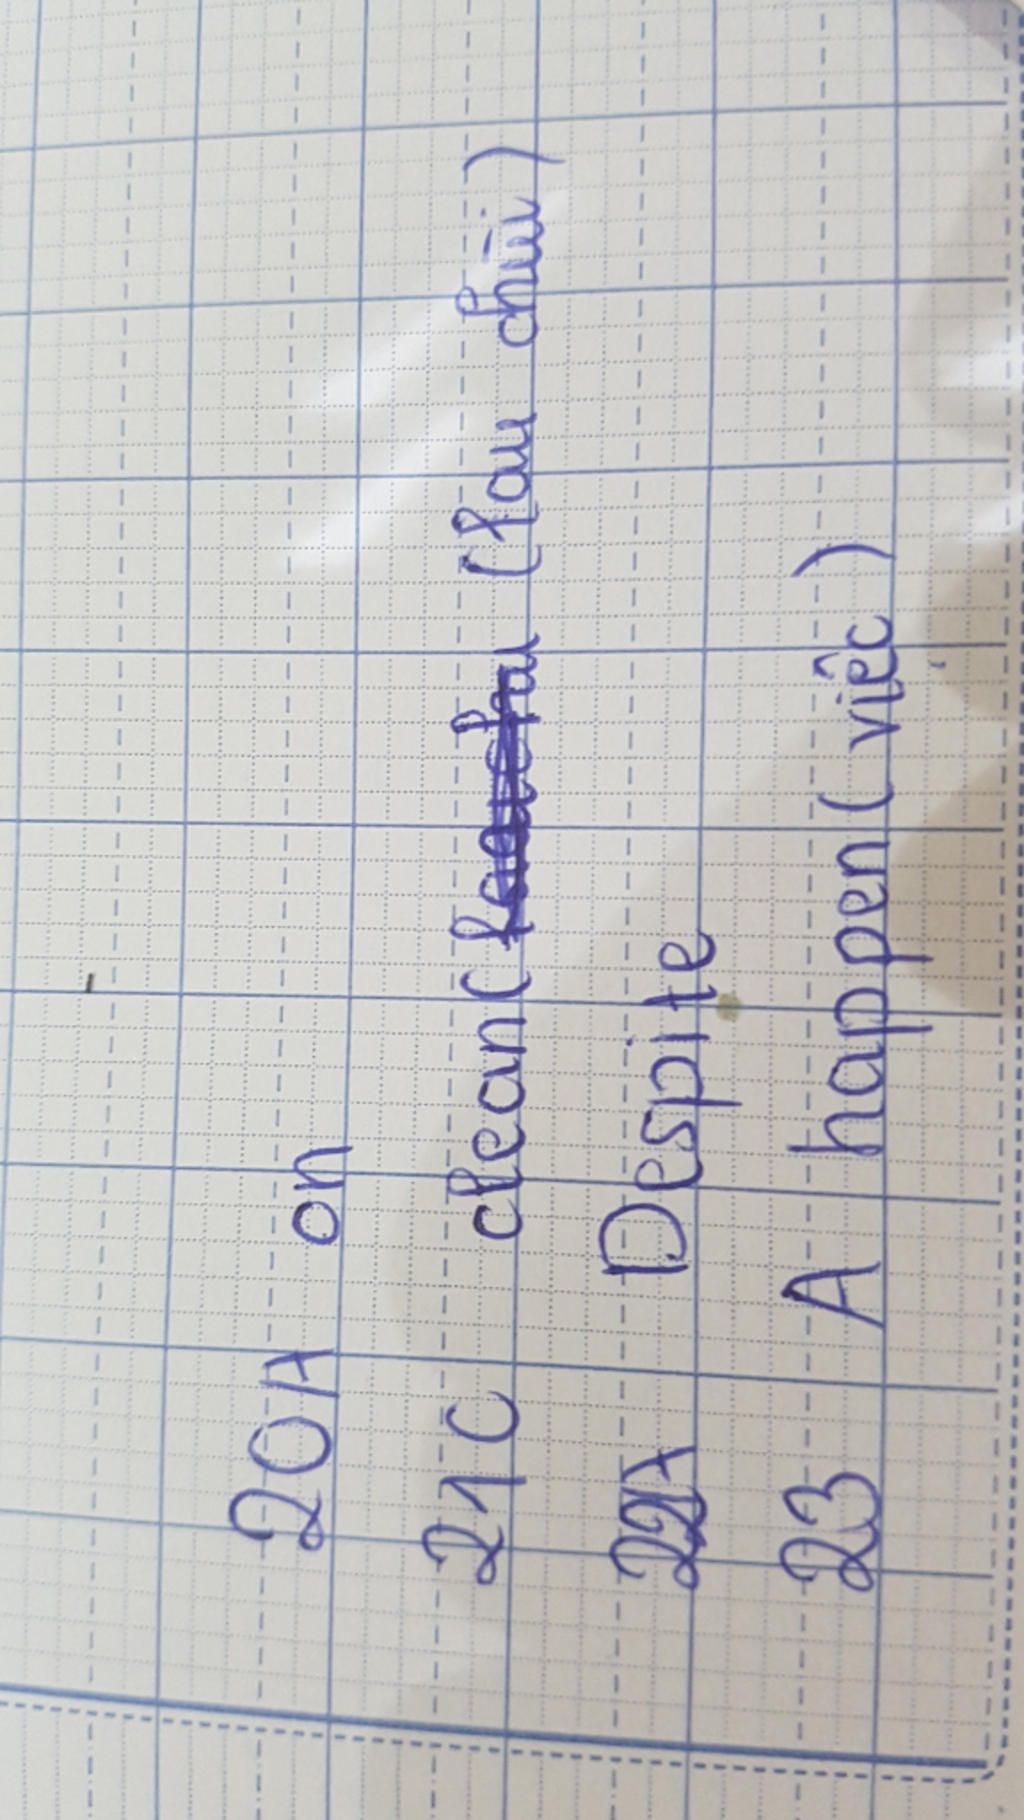 20A on
21C clean (lau chùi)
22A Despite
23 A happen (việc)